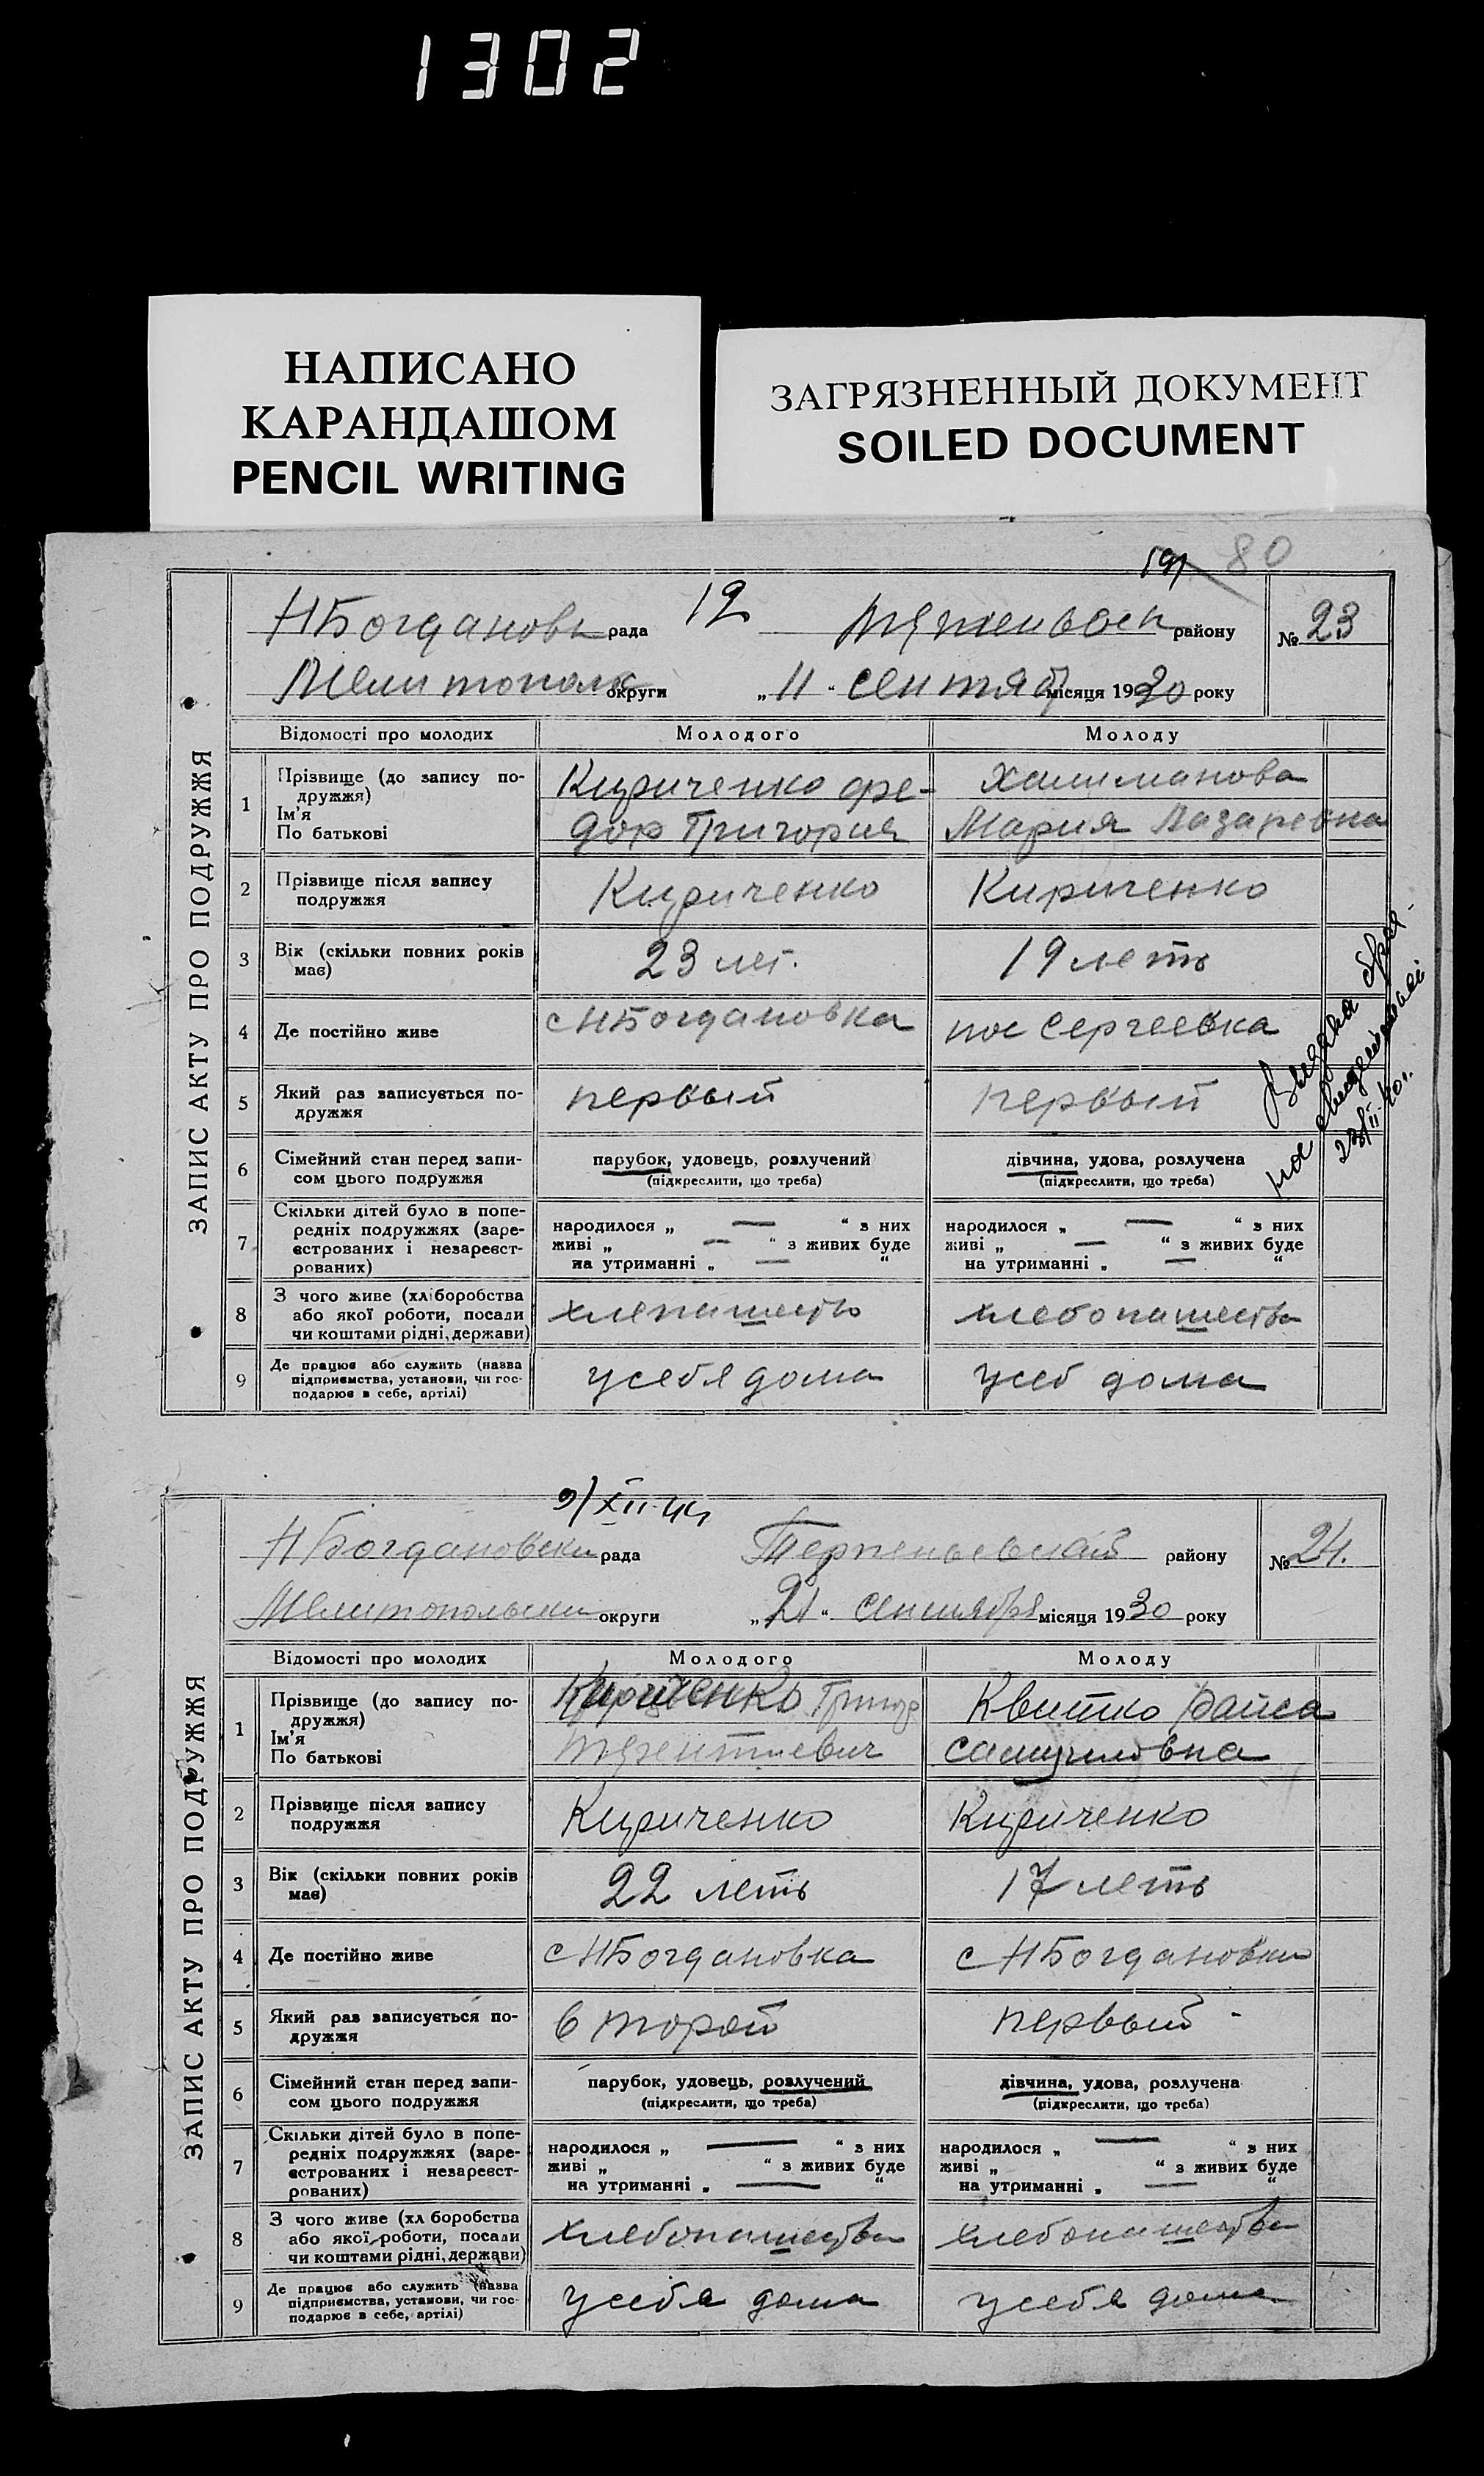 1302
НАПИСАНО
КАРАНДАШОМ
PENCIL WRITING
ЗАГРЯЗНЕННЫЙ ДОКУМЕНТ
SOILED DOCUMENT
80
ЗАПИС АКТУ ПРО ПОДРУЖЖЯ
НБогдановк рада 12 району № 23
Мелитополь округи „ 11 “ сентяб місяця 1930 року
Відомості про молодих Молодого Молоду
1 Прізвище (до запису по-
дружжя)
Ім'я
По батькові
Кириченко Фе-
дор Григория
Халиманова
Мария Лазаревна
2 Прізвище після запису
подружжя
Кириченко Кириченко
3 Вік (скільки повних років
має)
23 лет. 19 леть
4 Де постійно живе с НБогдановка пос Сергеевка
5 Який раз записується по-
дружжя
первый первый
6 Сімейний стан перед запи-
сом цього подружжя
парубок, удовець, розлучений
(підкреслити, що треба)
дівчина, удова, розлучена
(підкреслити, що треба)
7 Скільки дітей було в попе-
редніх подружжях (заре-
єстрованих і незареєст-
рованих)
народилося „ — “ з них
живі „ — “ з живих буде
на утриманні „ — “
народилося „ — “ з них
живі „ — “ з живих буде
на утриманні „ — “
8 З чого живе (хліборобства
або якої роботи, посади
чи коштами рідні, держави)
хлепашеств хлебопашества
9 Де працює або служить (назва
підприємства, установи, чи гос-
подарює в себе, артілі)
у себя дома у себ дома
Выдана
9/XII-44
ЗАПИС АКТУ ПРО ПОДРУЖЖЯ
НБогдановски рада Терпеньевский району № 24.
Мелитопольски округи „ 21 “ сентября місяця 1930 року
Відомості про молодих Молодого Молоду
1 Прізвище (до запису по-
дружжя)
Ім'я
По батькові
Кириченко Григор
Терентиевич
Квитко Раиса
самуиловна
2 Прізвище після запису
подружжя
Кириченко Кириченко
3 Вік (скільки повних років
має)
22 леть 17 леть
4 Де постійно живе с НБогдановка с НБогдановка
5 Який раз записується по-
дружжя
второй первый -
6 Сімейний стан перед запи-
сом цього подружжя
парубок, удовець, розлучений
(підкреслити, що треба)
дівчина, удова, розлучена
(підкреслити, що треба)
7 Скільки дітей було в попе-
редніх подружжях (заре-
єстрованих і незареєст-
рованих)
народилося „ — “ з них
живі „ “ з живих буде
на утриманні „ — “
народилося „ — “ з них
живі „ “ з живих буде
на утриманні „ — “
8 З чого живе (хл боробства
або якої роботи, посади
чи коштами рідні, держави)
хлебопашества хлебопашества
9 Де працює або служить (назва
підприємства, установи, чи гос-
подарює в себе, артілі)
у себя дома у себя дома